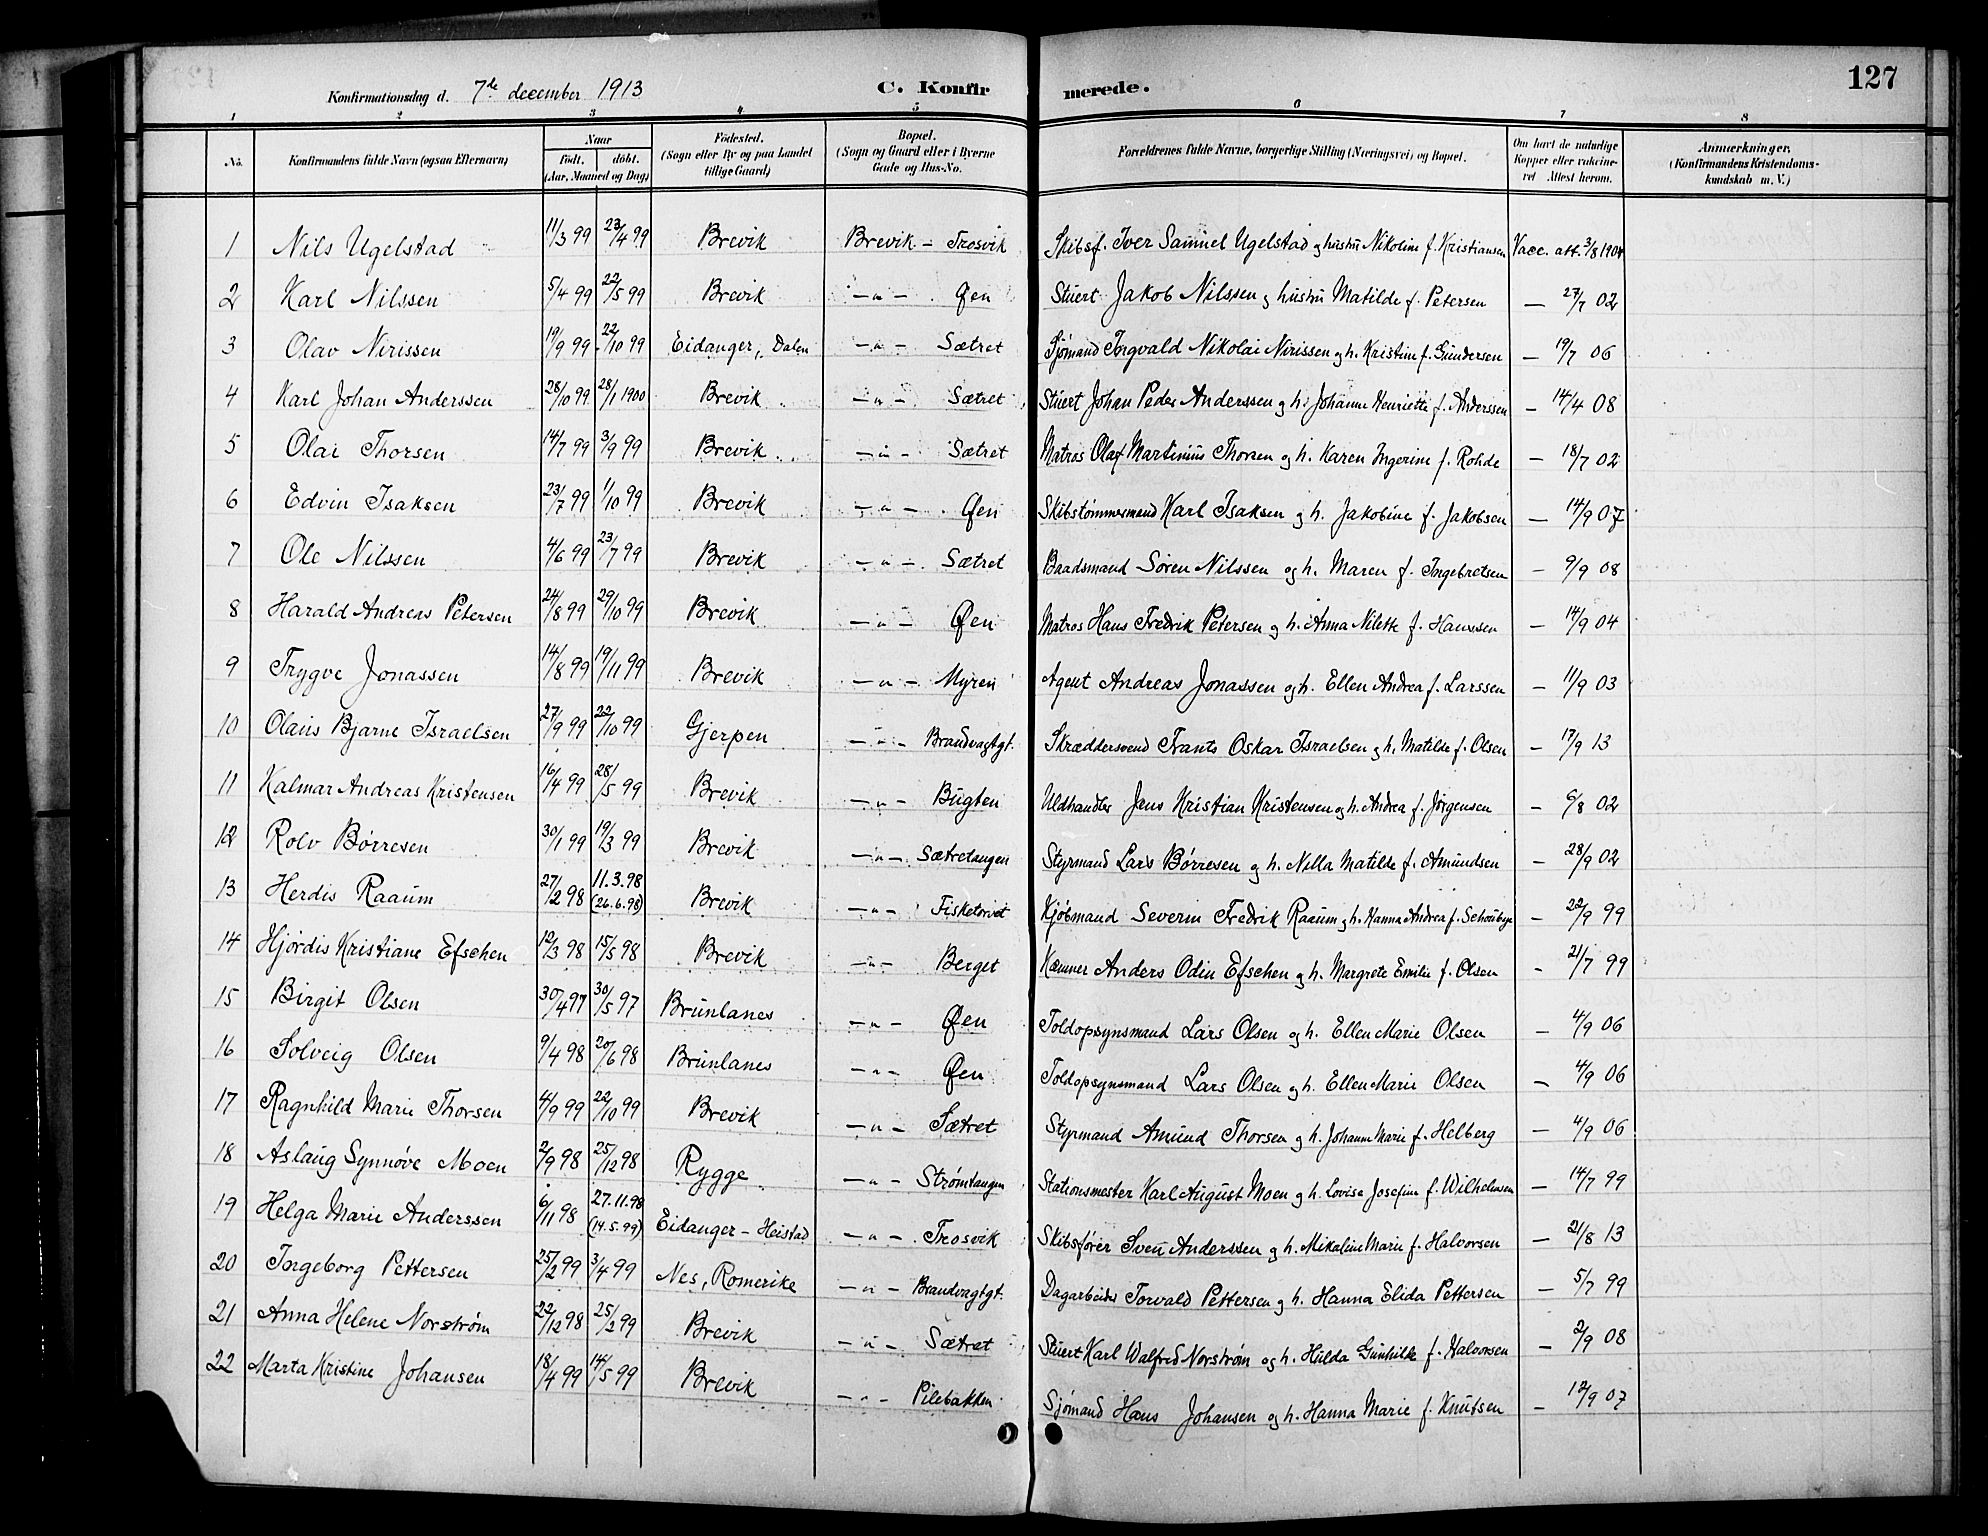 127
Konfirmationsdag d. 7de december 1913 C. Konfirmerede.
1 2 3 4 5 6 7 8
No. Konfirmandens fulde Navn (ogsaa Efternavn) Naar født. døbt. (Aar, Maaned og Dag) Fødested. (Sogn eller By og paa Landet tillige Gaard) Bopæl. (Sogn og Gaard eller i Byerne Gade og Hus-No. Forældrenes fulde Navne, borgerlige Stilling (Næringsvei) og Bopæl. Om havt de naturlige Kopper eller vaccineret Attest herom. Anmærkninger. (Konfirmandens Kristendomskundskab m. V.)
1 Nils Ugelstad 11/3 99 23/4 99 Brevik Brevik - Trosvik Skibsf. Iver Samuel Ugelstad og hustru Nikoline f. Kristiansen Vacc. att. 3/8 1904
2 Karl Nilssen 5/4 99 22/5 99 Brevik —„— Øen Stuert Jakob Nilssen og hustru Matilde f. Petersen — 27/7 02
3 Olav Nirissen 19/9 99 22/10 99 Eidanger, Dalen —„— Sætret Sjømand Ingvald Nikolai Nirissen og h. Kristine f. Gundersen — 19/7 06
4 Karl Johan Anderssen 28/10 99 28/1 1900 Brevik —„— Sætret Stuert Johan Peder Anderssen og h. Johanne Henriette f. Anderssen — 14/4 08
5 Olai Thorsen 14/7 99 3/9 99 Brevik —„— Sætret Matros Olaf Martinius Thorsen og h. Karen Ingerine f. Rohde — 18/7 02
6 Edvin Isaksen 23/7 99 1/10 99 Brevik —„— Øen Skibstømmermand Karl Isaksen og h. Jakobine f. Jakobsen — 14/9 07
7 Ole Nilssen 4/6 99 23/7 99 Brevik —„— Sætret Baadsmand Søren Nilssen og h. Maren f. Ingebretsen — 9/9 08
8 Harald Andreas Petersen 24/8 99 29/10 99 Brevik —„— Øen Matros Hans Fredrik Petersen og h. Anna Nilette f. Hanssen — 14/9 04
9 Trygve Jonassen 14/8 99 19/11 99 Brevik —„— Myren Agent Andreas Jonassen og h. Ellen Andrea f. Larssen — 11/9 03
10 Olaus Bjarne Israelsen 27/9 99 22/10 99 Gjerpen —„— Brandvagtgt. Skræddersvend Frants Oskar Israelsen og h. Matilde f. Olsen — 17/9 13
11 Kalmar Andreas Kristensen 16/4 99 28/5 99 Brevik —„— Bugten Uldhandler Jens Kristian Kristensen og h. Andrea f. Jørgensen — 6/8 02
12 Rolv Børresen 30/1 99 19/3 99 Brevik —„— Sætretangen Styrmand Lars Børresen og h. Nilla Matilde f. Amundsen — 28/9 02
13 Herdis Raaum 27/2 98 11.3.98 (26.6.98) Brevik —„— Fisketorvet Kjøbmand Severin Fredrik Raaum og h. Hanna Andrea f. Schoubye — 22/9 99
14 Hjørdis Kristiane Efschen 12/3 98 15/5 98 Brevik —„— Berget Kæmner Anders Odin Efschen og h. Margrete Emilie f. Olsen — 21/7 99
15 Birgit Olsen 30/4 97 30/5 97 Brunlanes —„— Øen Toldopsynsmand Lars Olsen og h. Ellen Marie Olsen — 4/9 06
16 Solveig Olsen 9/4 98 20/6 98 Brunlanes —„— Øen Toldopsynsmand Lars Olsen og h. Ellen Marie Olsen — 4/9 06
17 Ragnhild Marie Thorsen 4/9 99 22/10 99 Brevik —„— Sætret Styrmand Amund Thorsen og h. Johanne Marie f. Helberg — 4/9 06
18 Aslaug Synnøve Moen 2/9 98 25/12 98 Rygge —„— Strømtangen Stationsmester Karl August Moen og h. Lovise Josefine f. Wilhelmsen — 14/7 99
19 Helga Marie Anderssen 6/11 98 27.11.98 (14.5.99) Eidanger - Heistad —„— Trosvik Skibsfører Sven Anderssen og h. Mikaline Marie f. Halvorsen — 21/8 13
20 Ingeborg Pettersen 25/2 99 3/4 99 Nes, Romerike —„— Brandvagtgt. Dagarbeider Torvald Pettersen og h. Hanna Elida Pettersen — 5/7 99
21 Anna Helene Norstrøm 22/12 98 25/2 99 Brevik —„— Sætret Stuert Karl Walfred Norstrøm og h. Hilda Gunhilde f. Halvorsen — 2/9 08
22 Marta Kristine Johansen 18/4 99 14/5 99 Brevik —„— Pilebakken Sjømand Hans Johansen og h. Hanna Marie f. Knutsen — 12/9 07